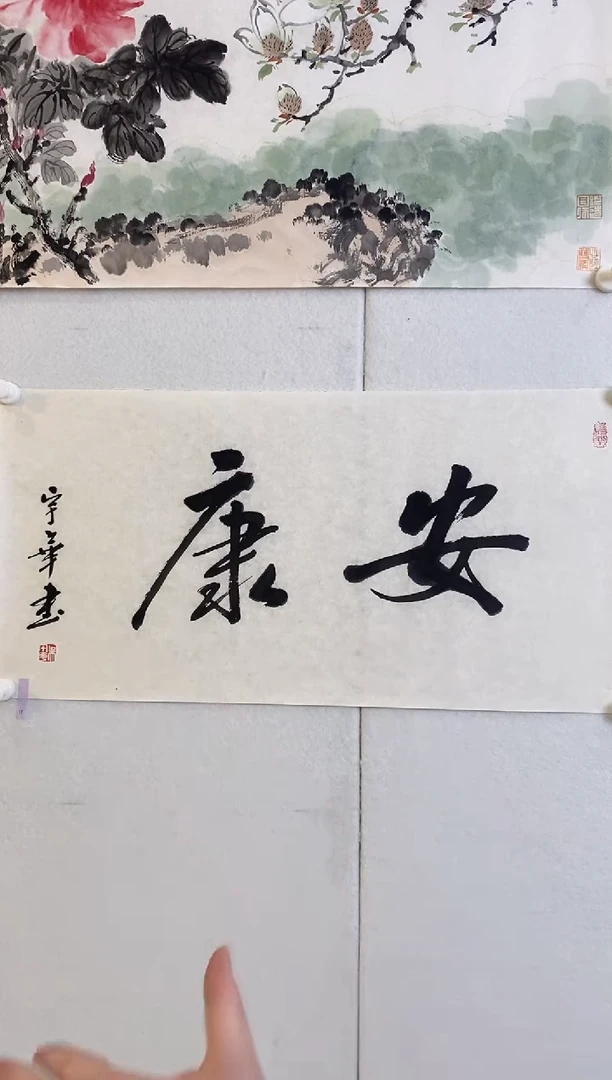 安康
宇華書